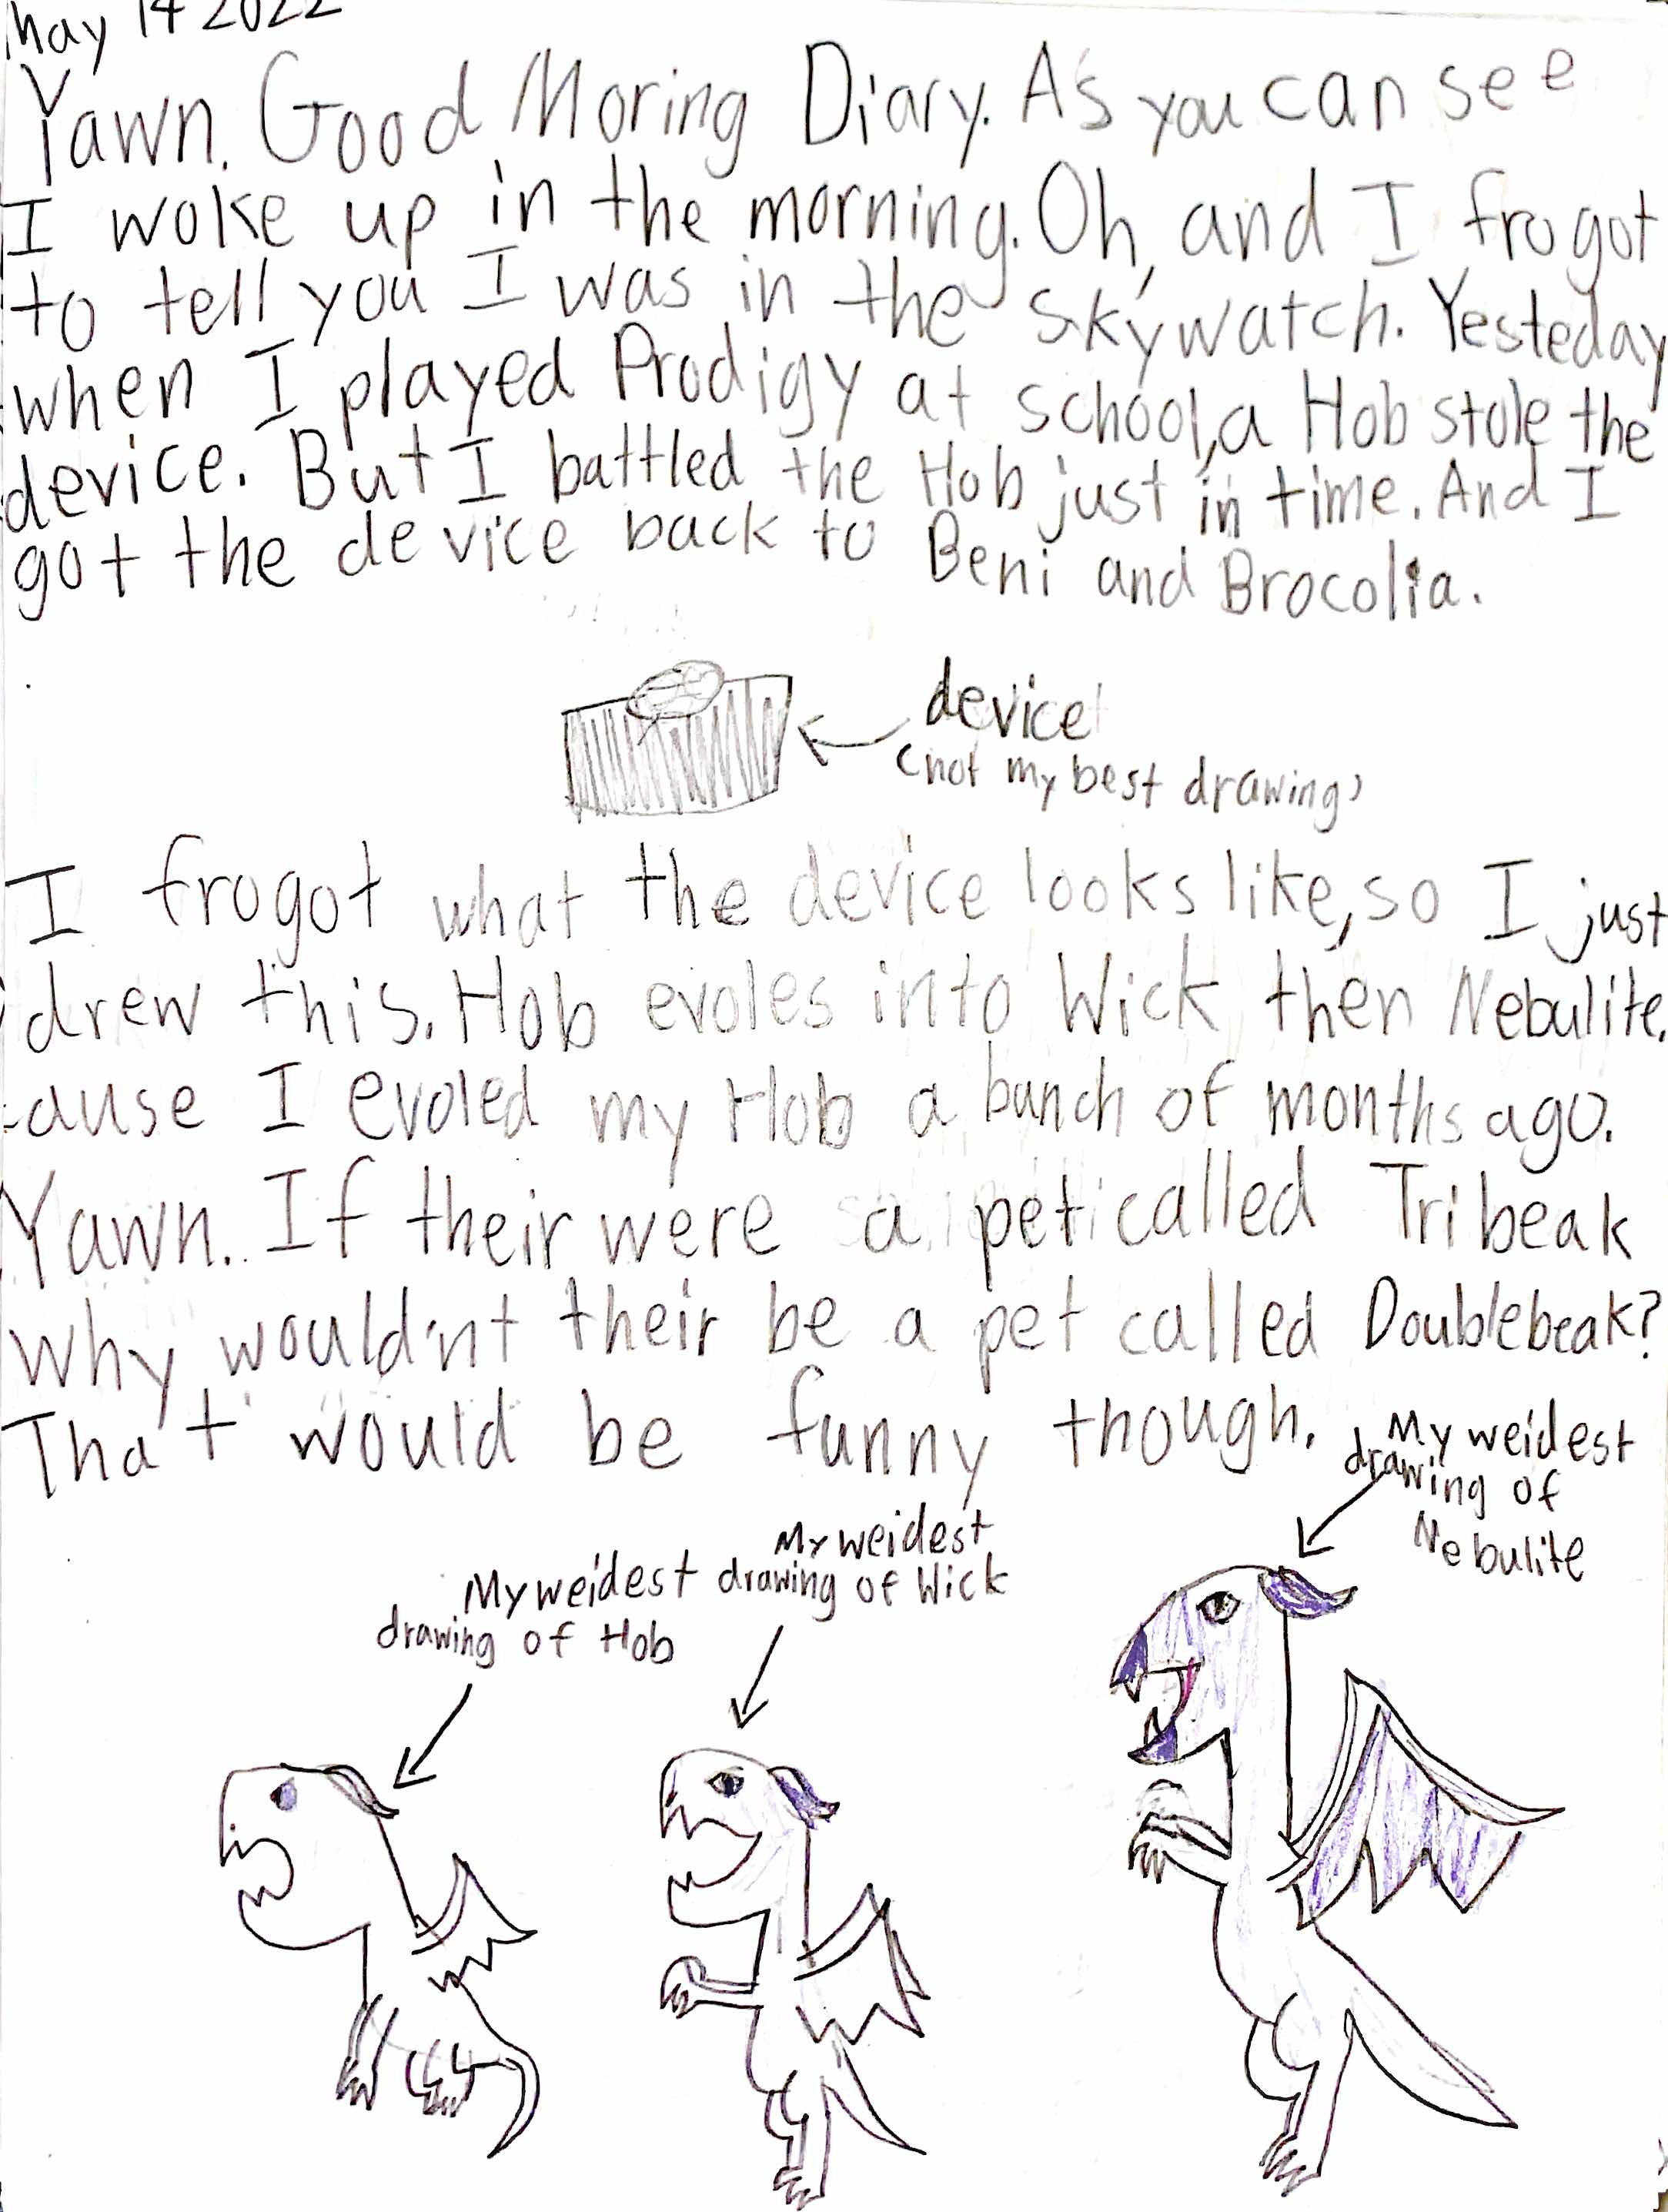 May 14 2022
Yawn. Good Moring Diary. As you can see
I woke up in the morning. Oh, and I frogot
to tell you I was in the Skywatch. Yesteday
when I played Prodigy at school, a Hob stole the
device. But I battled the Hob just in time. And I
got the device back to Beni and Brocolia.
device
(not my best drawing)
I frogot what the device looks like, so I just
drew this. Hob evoles into Wick then Nebulite.
cause I evoled my Hob a bunch of months ago.
Yawn. If their were a pet called Tribeak
why would'nt their be a pet called Doublebeak?
That would be funny though.
My weidest
drawing of
Nebulite
My weidest
drawing of Wick
My weidest
drawing of Hob